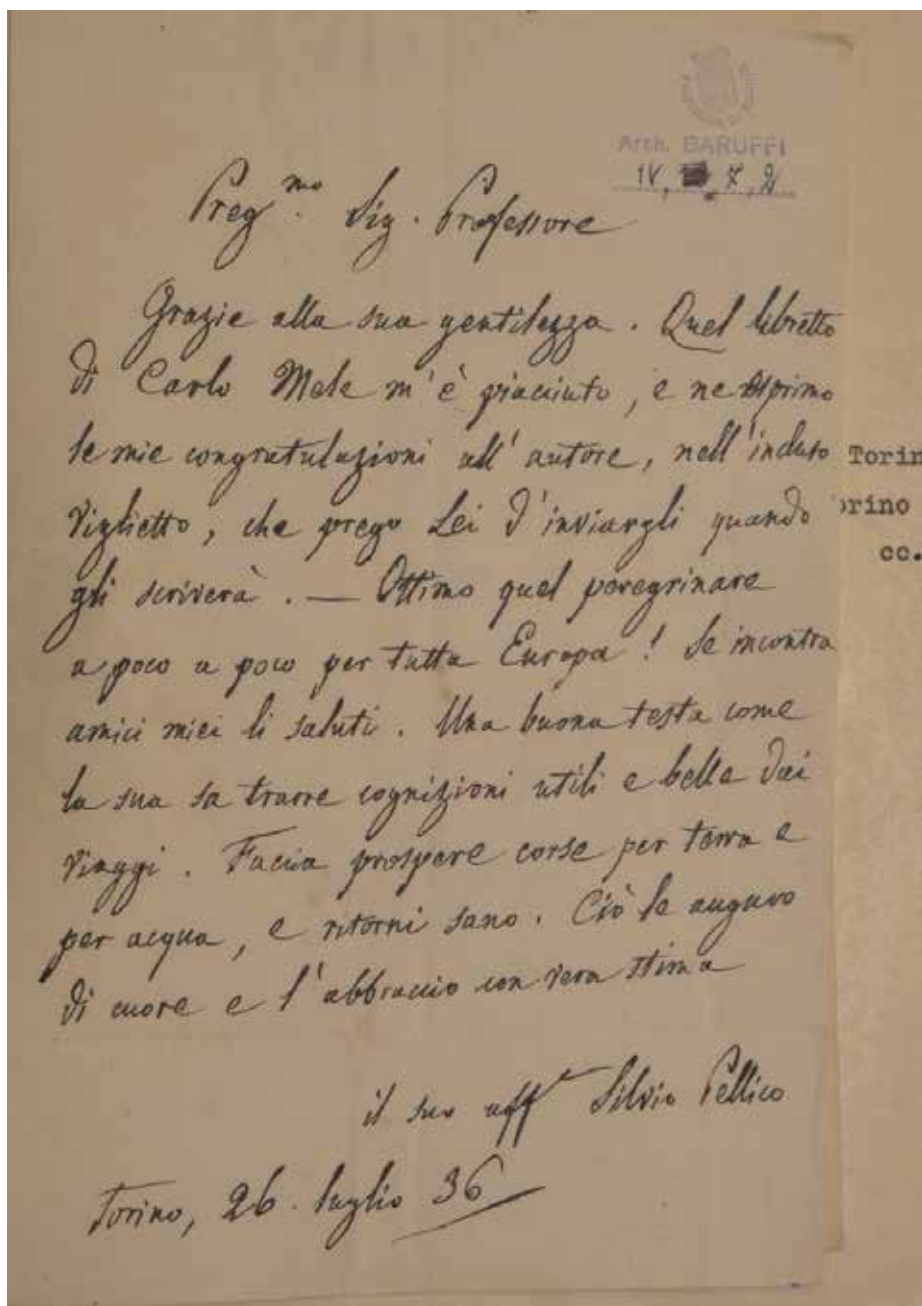 Arch. BARUFFI
IV, 7, 2
Preg.mo Sig. Professore
Grazie alla sua gentilezza. Quel libretto
di Carlo Mele m'è piaciuto, e ne esprimo
le mie congratulazioni all'autore, nell'incluso
viglietto, che prego Lei d'inviargli quando
gli scriverà. — Ottimo quel peregrinare
a poco a poco per tutta Europa! Se incontra
amici miei li saluti. Una buona testa come
la sua sa trarre cognizioni utili e belle dai
viaggi. Faccia prospere corse per terra e
per acqua, e ritorni sano. Ciò le auguro
di cuore e l'abbraccio con vera stima
il suo aff.e Silvio Pellico
Torino, 26. luglio 36
Torin
orino
cc.